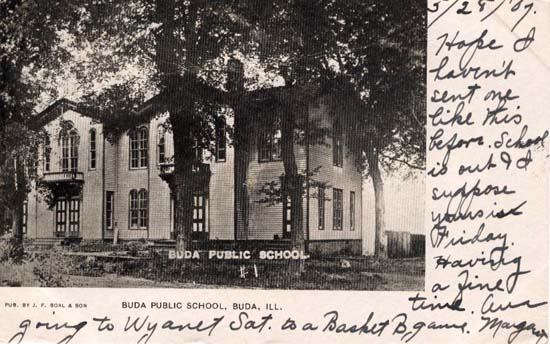 5/25/07.
Hope I
haven't
sent one
like this
before. School
is out & I
suppose
yours is
Friday.
Having
a fine
time. Am
going to Wyanet Sat. to a Basket B. game. Margary
BUDA PUBLIC SCHOOL.
PUB. BY J. F. BOAL & SON
BUDA PUBLIC SCHOOL, BUDA, ILL.